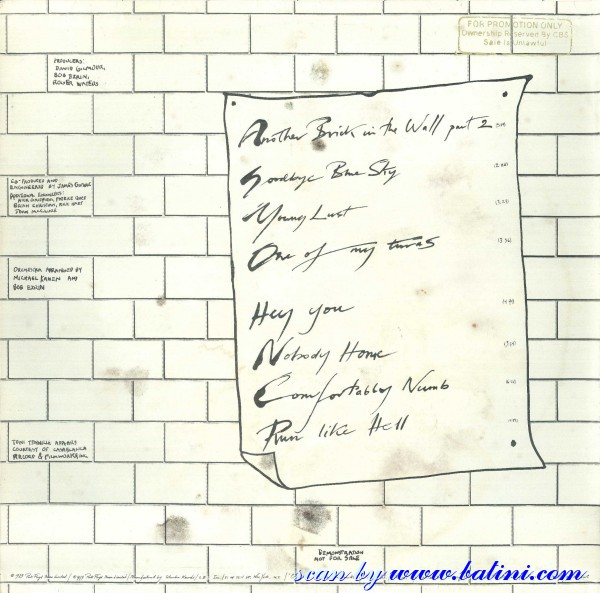 FOR PROMOTION ONLY
Ownership Reserved By CBS
Sale Is Unlawful
PRODUCERS:
DAVID GILMOUR,
BOB EZRIN,
ROGER WATERS
Another Brick in the Wall part 2
Goodbye Blue Sky
Young Lust
One of my turns
Hey you
Nobody Home
Comfortably Numb
Run like Hell
CO-PRODUCED AND
ENGINEERED BY JAMES GUTHRIE
ADDITIONAL ENGINEERS:
NICK GRIFFITHS, PATRICE QUEF
BRIAN CHRISTIAN, RICK HART
JOHN MCCLURE
ORCHESTRA ARRANGED BY
MICHAEL KAMEN AND
BOB EZRIN
TONI TENNILLE APPEARS
COURTESY OF CASABLANCA
RECORD & FILMWORKS INC
DEMONSTRATION
NOT FOR SALE
scan by www.batini.com